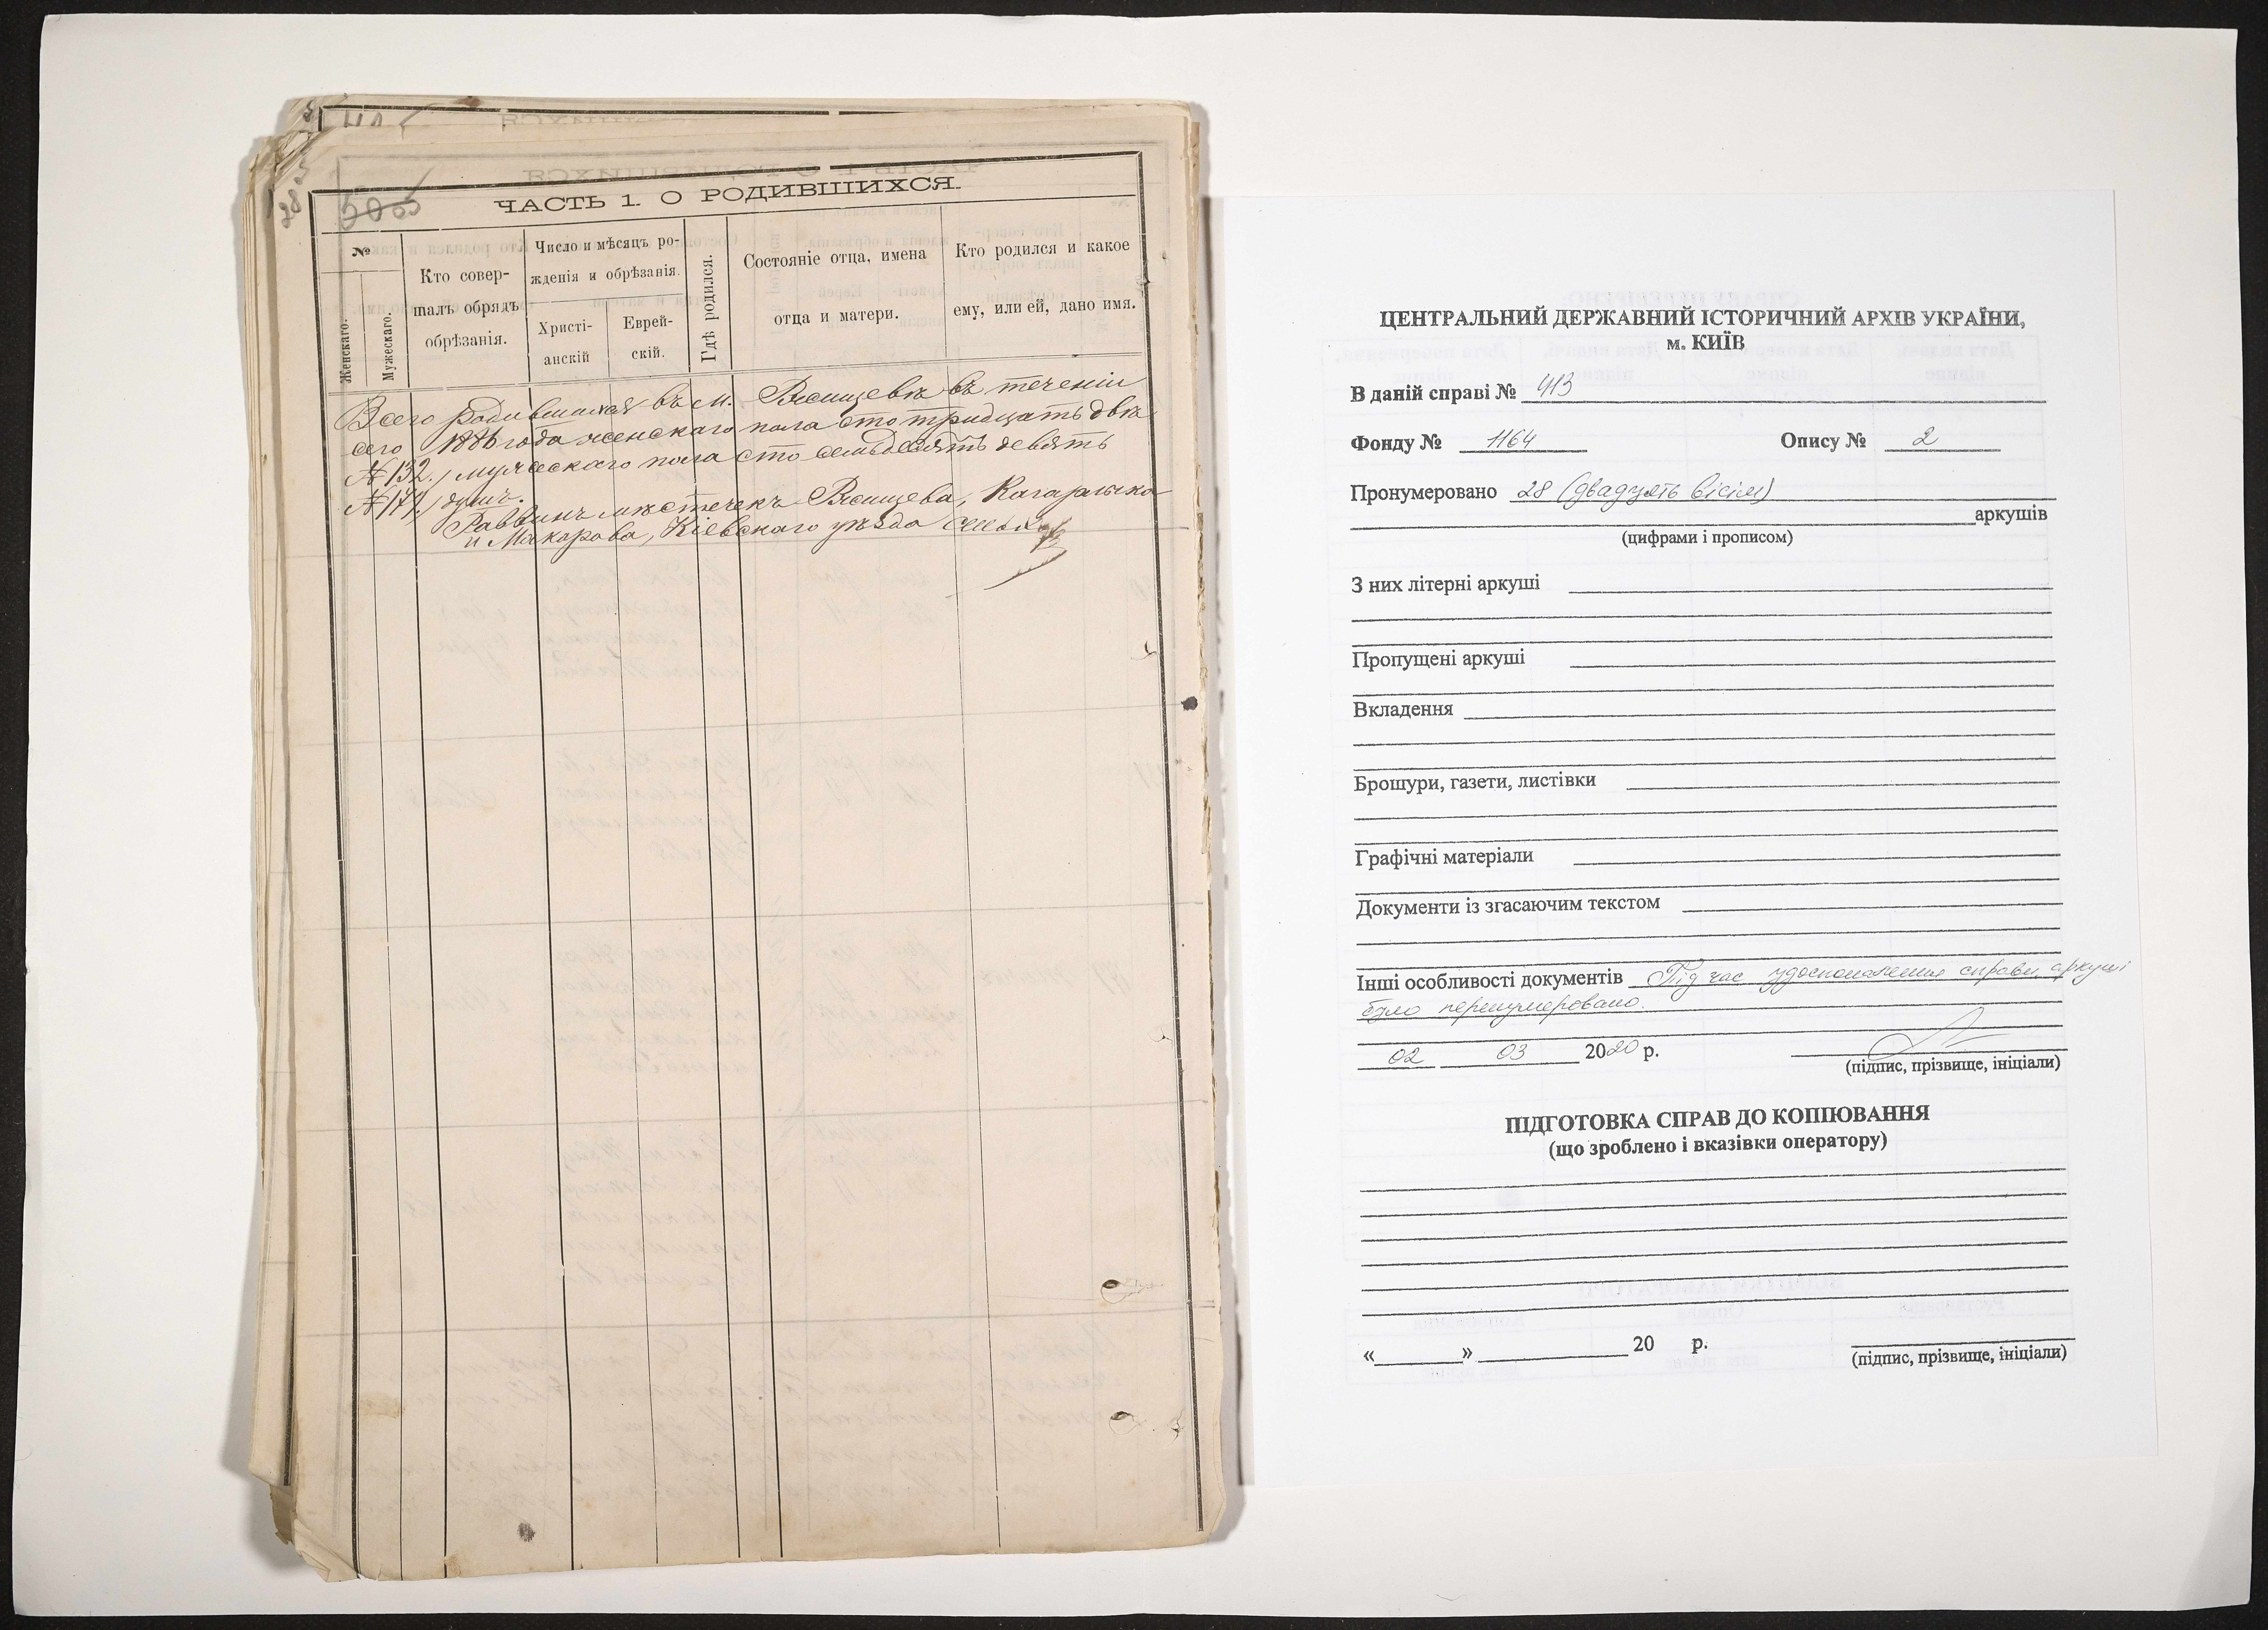 28
ЧАСТЬ 1. О РОДИВШИХСЯ.
№
Женскаго.
Мужескаго.
Кто совер-
шалъ обрядъ
обрѣзанія.
Число и мѣсяцъ ро-
жденія и обрѣзанія.
Христі-
анскій
Еврей-
скій.
Гдѣ родился.
Состояніе отца, имена
отца и матери.
Кто родился и какое
ему, или ей, дано имя.
Всего родившихся въ м. Ржищевѣ въ теченіи
сего 1886 года женскаго пола сто тридцать двѣ
№ 132. мужескаго пола сто семьдесятъ девять
№ 179, душъ.
Раввинъ мѣстечекъ Ржищева, Кагарлыка
и Макарова, Кіевскаго уѣзда
ЦЕНТРАЛЬНИЙ ДЕРЖАВНИЙ ІСТОРИЧНИЙ АРХІВ УКРАЇНИ,
м. КИЇВ
В даній справі № 413
Фонду № 1164 Опису № 2
Пронумеровано 28 (двадцять вісім)
аркушів
(цифрами і прописом)
З них літерні аркуші
Пропущені аркуші
Вкладення
Брошури, газети, листівки
Графічні матеріали
Документи із згасаючим текстом
Інші особливості документів Під час удосконалення справи аркуші
було перенумеровано.
02 03 2020 р.
(підпис, прізвище, ініціали)
ПІДГОТОВКА СПРАВ ДО КОПІЮВАННЯ
(що зроблено і вказівки оператору)
«        »                20    р.
(підпис, прізвище, ініціали)